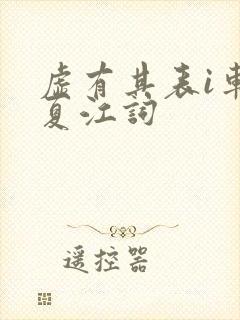 虚有其表i車
夏江詞
遥控器